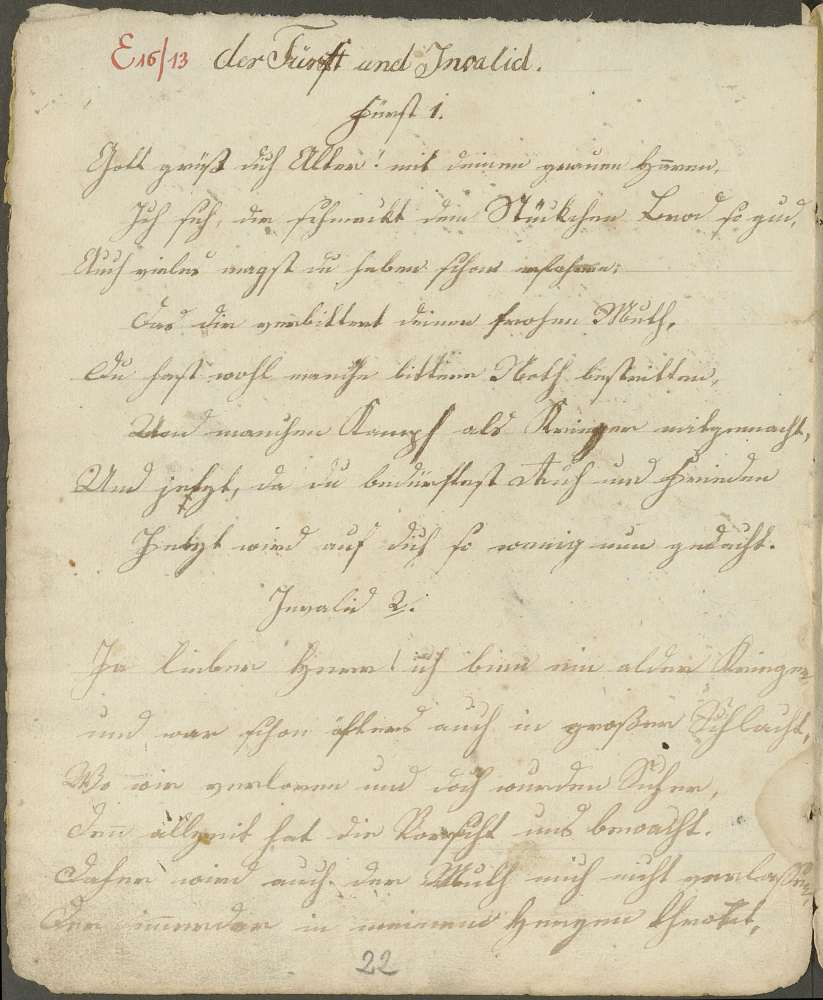 E 16/13 der Fürst und Invalid.
Fürst 1.
Gott grüß dich Alter! mit deinen grauen Haaren,
Ich sich, dir schmeckt dein Stückchen Brod so gud,
Auch vieles magst du haben schon erfahren,
Das dir verbittert deinen frohen Muth,
Du hast wohl manche bittere Noth bestritten,
Und manchen Kampf als Krieger mitgemacht,
Und jetzt, da du bedürftest Ruh und Frieden
Jetzt wird auf dich so wenig nun gedacht.
Invalid 2.
Ja lieber Herr! ich binn ein alder Krieger,
und war schon öfters auch in großer Schlacht,
Wo wir verloren und doch wurden Sieher,
Den allzeit hat die Vorsicht uns bewacht.
Daher wird auch der Muth mich nicht verlaßen,
Der immerdar in meinem Herzen thront,
22